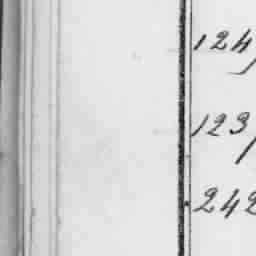 124
123
242